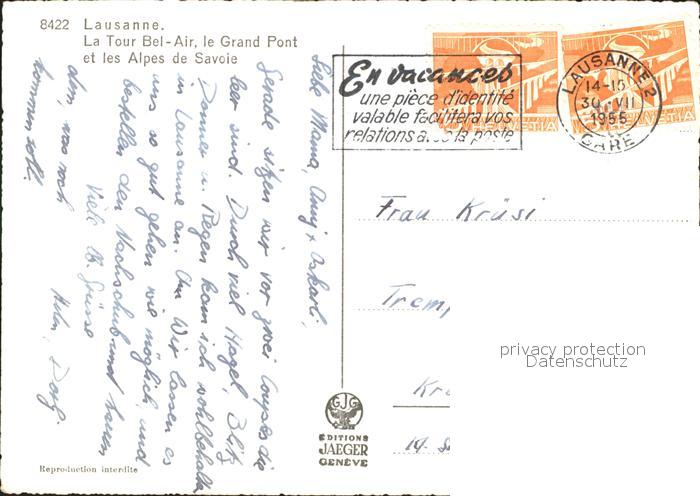 8422 Lausanne.
La Tour Bel-Air, le Grand Pont
et les Alpes de Savoie
En vacances
une pièce d'identité
valable facilitera vos
relations avec la poste
HELVETIA
HELVETIA
LAUSANNE 2
14-15
30.VII
1955
GARE
Liebe Mama, Anny + Oskarli,
Gerade sitzen wir vor zwei Coupes die
leer sind. Durch viel Hagel, Blitz
Donner u. Regen kam ich wohlbehalten
in Lausanne an. Wir lassen es
uns so gut gehen wie möglich und
bestellen den Nachschub und
was noch
kommen soll!
Viele Grüsse
Frau Krüsi
Tremp
Kr
19. S
privacy protection
Datenschutz
ÉDITIONS
JAEGER
GENÈVE
Reproduction interdite